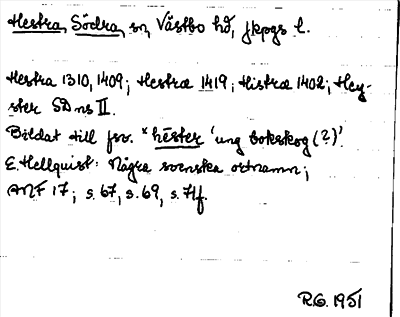 Hestra, Södra, sn, Västbo hd, Jkpgs l.
Hestra 1310, 1409; Hestræ 1419; Histræ 1402; Hey-
ster SD ns II.
Bildat till fsv. *hēster 'ung bokskog (?)'.
E. Hellquist: Några svenska ortnamn;
ANF 17; s. 67, s. 69, s. 71f.
R.G. 1951